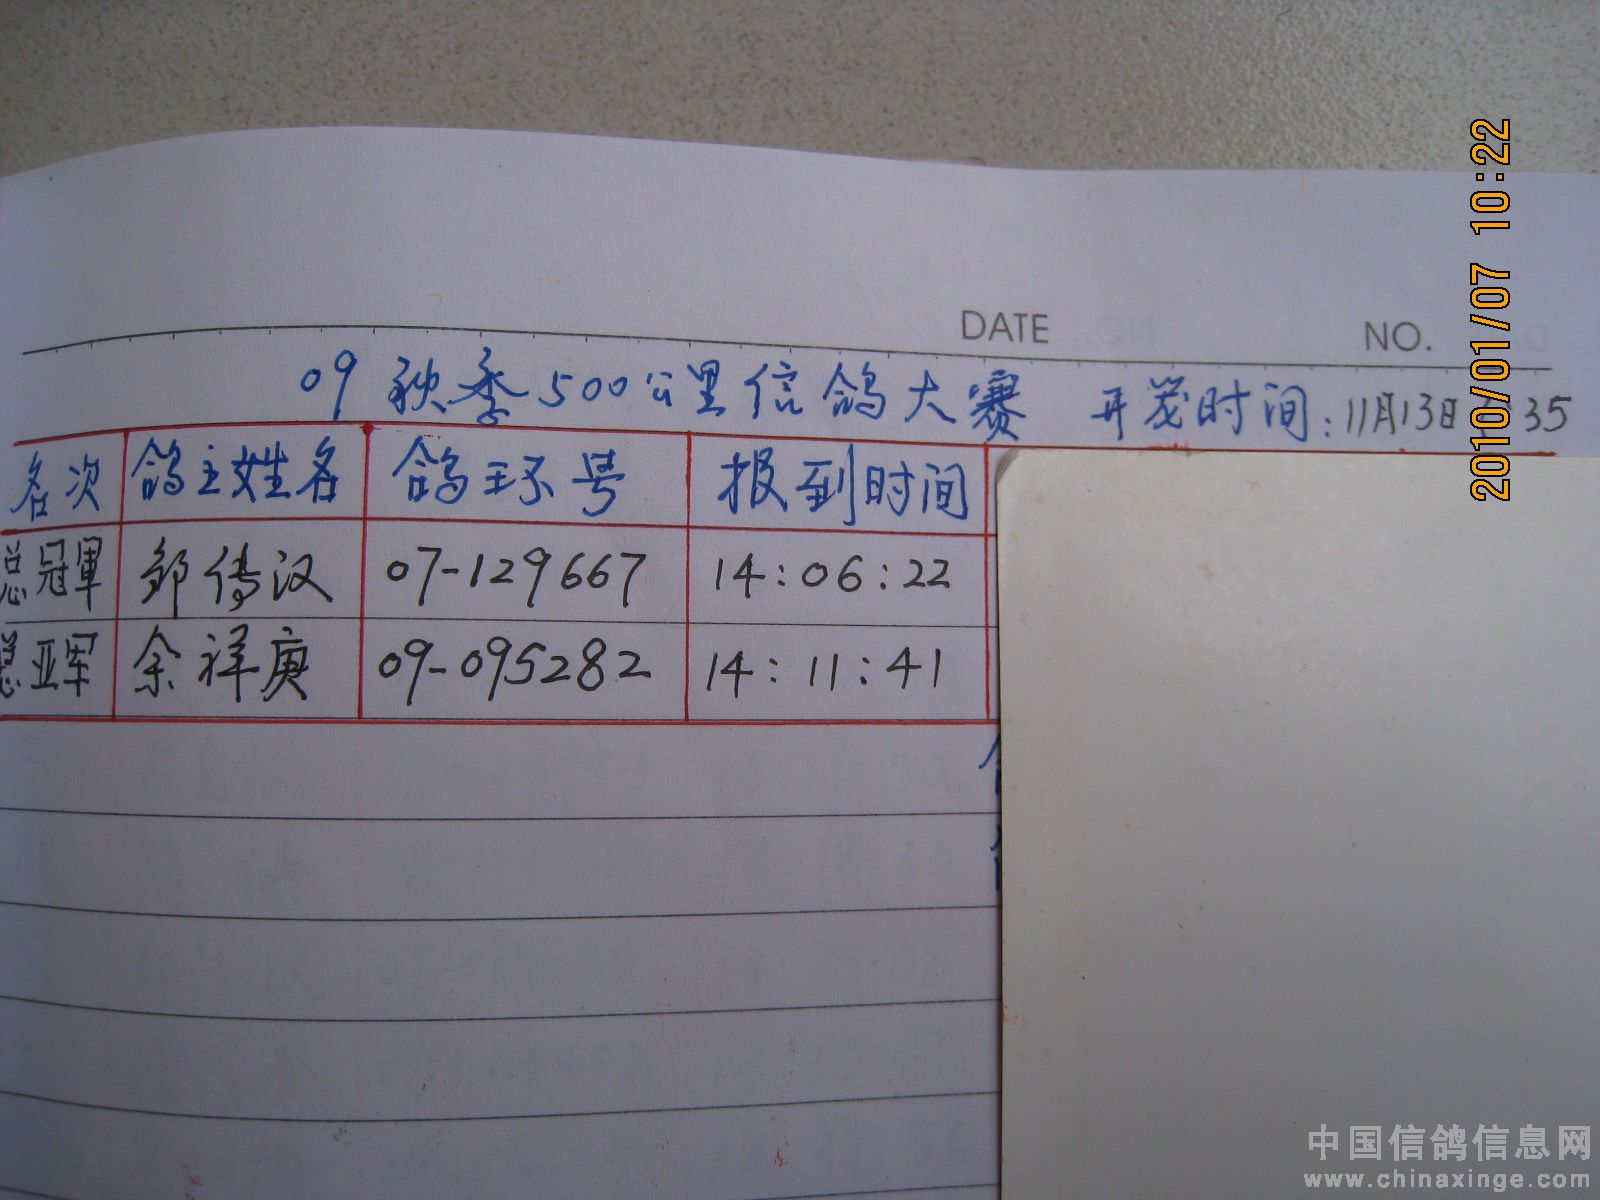 DATE NO.
09秋季500公里信鸽大赛 开笼时间：11月13日 35
名次 鸽主姓名 鸽环号 报到时间
总冠軍 邹传汉 07-129667 14:06:22
总亚军 余祥庚 09-095282 14:11:41
2010/01/07 10:22
中国信鸽信息网
www.chinaxinge.com